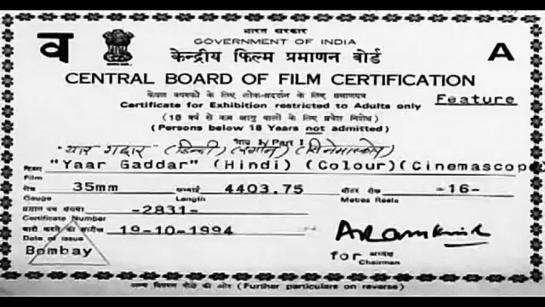 भारत सरकार
GOVERNMENT OF INDIA
व केन्द्रीय फिल्म प्रमाणन बोर्ड A
CENTRAL BOARD OF FILM CERTIFICATION
केवल वयस्कों के लिए लोक-प्रदर्शन के लिए प्रमाणपत्र
Certificate for Exhibition restricted to Adults only Feature
(18 वर्ष से कम आयु वालों के लिए प्रवेश निषेध)
(Persons below 18 Years not admitted)
भाग I/Part I
"यार गद्दार" (हिन्दी) (रंगीन) (सिनेमास्कोप)
फिल्म "Yaar Gaddar" (Hindi) (Colour) (Cinemascope
Film
गेज 35mm लम्बाई 4403.75 मीटर रील -16-
Gauge Length Metres Reels
प्रमाण पत्र संख्या -2831-
Certificate Number
जारी करने की तारीख 19-10-1994
Date of Issue
Bombay for अध्यक्ष
Chairman
(Further particulars on reverse)